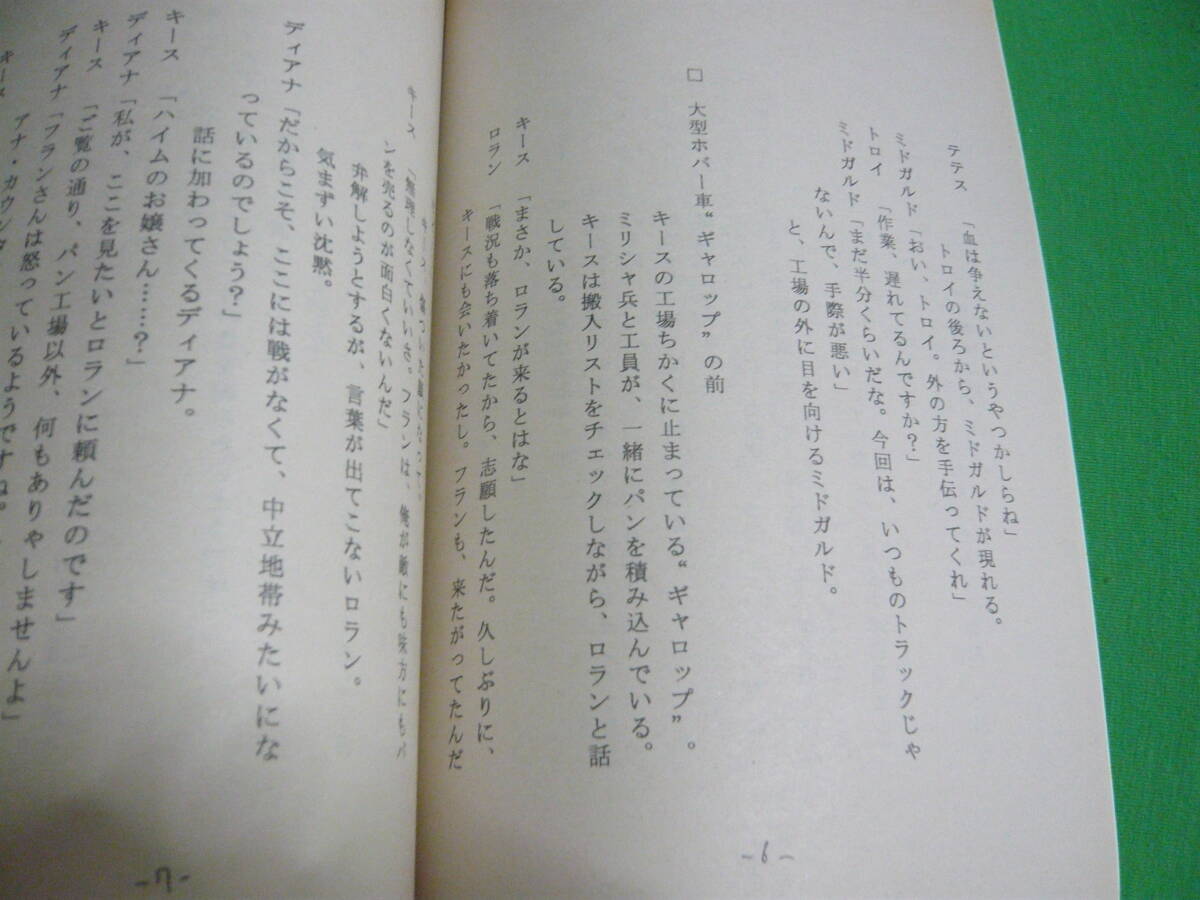 テテス　「血は争えないというやつかしらね」
トロイの後ろから、ミドガルドが現れる。
ミドガルド「おい、トロイ。外の方を手伝ってくれ」
トロイ　「作業、遅れてるんですか?」
ミドガルド「まだ半分くらいだな。今回は、いつものトラックじゃ
ないんで、手際が悪い」
と、工場の外に目を向けるミドガルド。
□　大型ホバー車“ギャロップ”の前
キースの工場ちかくに止まっている“ギャロップ”。
ミリシャ兵と工員が、一緒にパンを積み込んでいる。
キースは搬入リストをチェックしながら、ロランと話
している。
キース　「まさか、ロランが来るとはな」
ロラン　「戦況も落ち着いてたから、志願したんだ。久しぶりに、
キースにも会いたかったし。フランも、来たがってたんだ
-6-
キース　「無理しなくていいさ。フランは、俺が敵にも味方にもパ
ンを売るのが面白くないんだ」
弁解しようとするが、言葉が出てこないロラン。
気まずい沈黙。
ディアナ「だからこそ、ここには戦がなくて、中立地帯みたいにな
っているのでしょう?」
話に加わってくるディアナ。
キース　「ハイムのお嬢さん……?」
ディアナ「私が、ここを見たいとロランに頼んだのです」
キース　「ご覧の通り、パン工場以外、何もありゃしませんよ」
ディアナ「フランさんは怒っているようですね。
キース
-7-